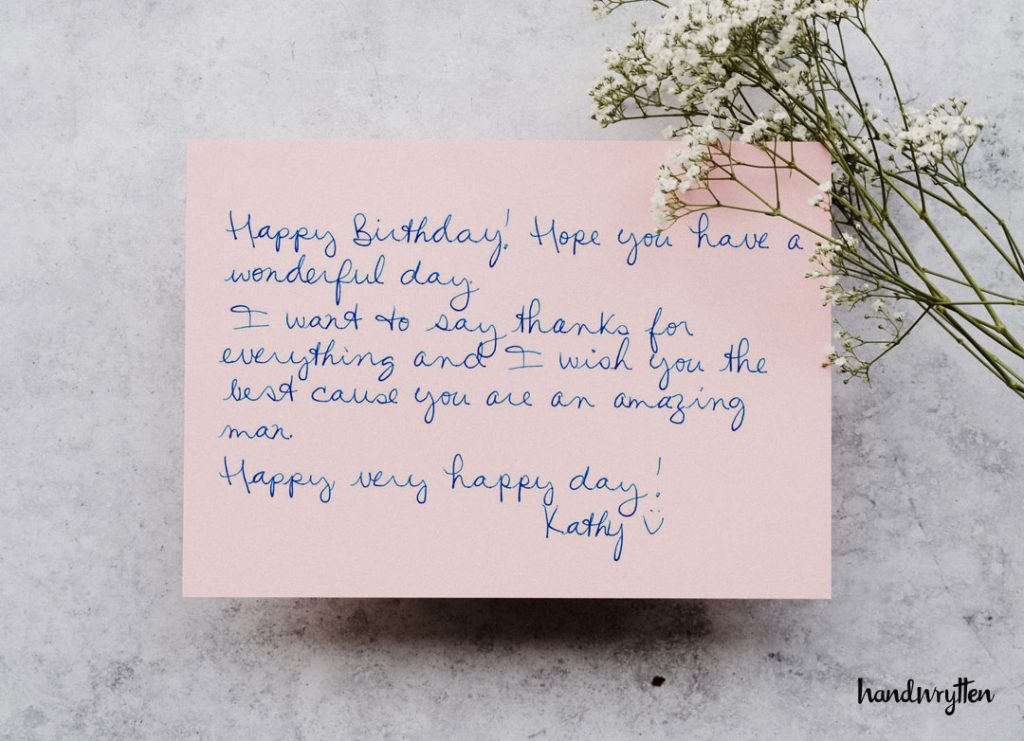 Happy Birthday! Hope you have a
wonderful day.
I want to say thanks for
everything and I wish you the
best cause you are an amazing
man.
Happy, very happy day!
Kathy Ü
handwrytten